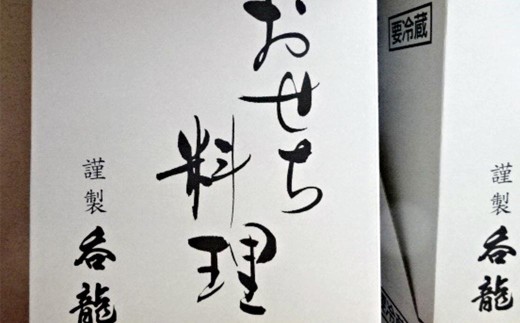 おせち
料理
謹製 呑龍
要冷蔵
謹製 呑龍